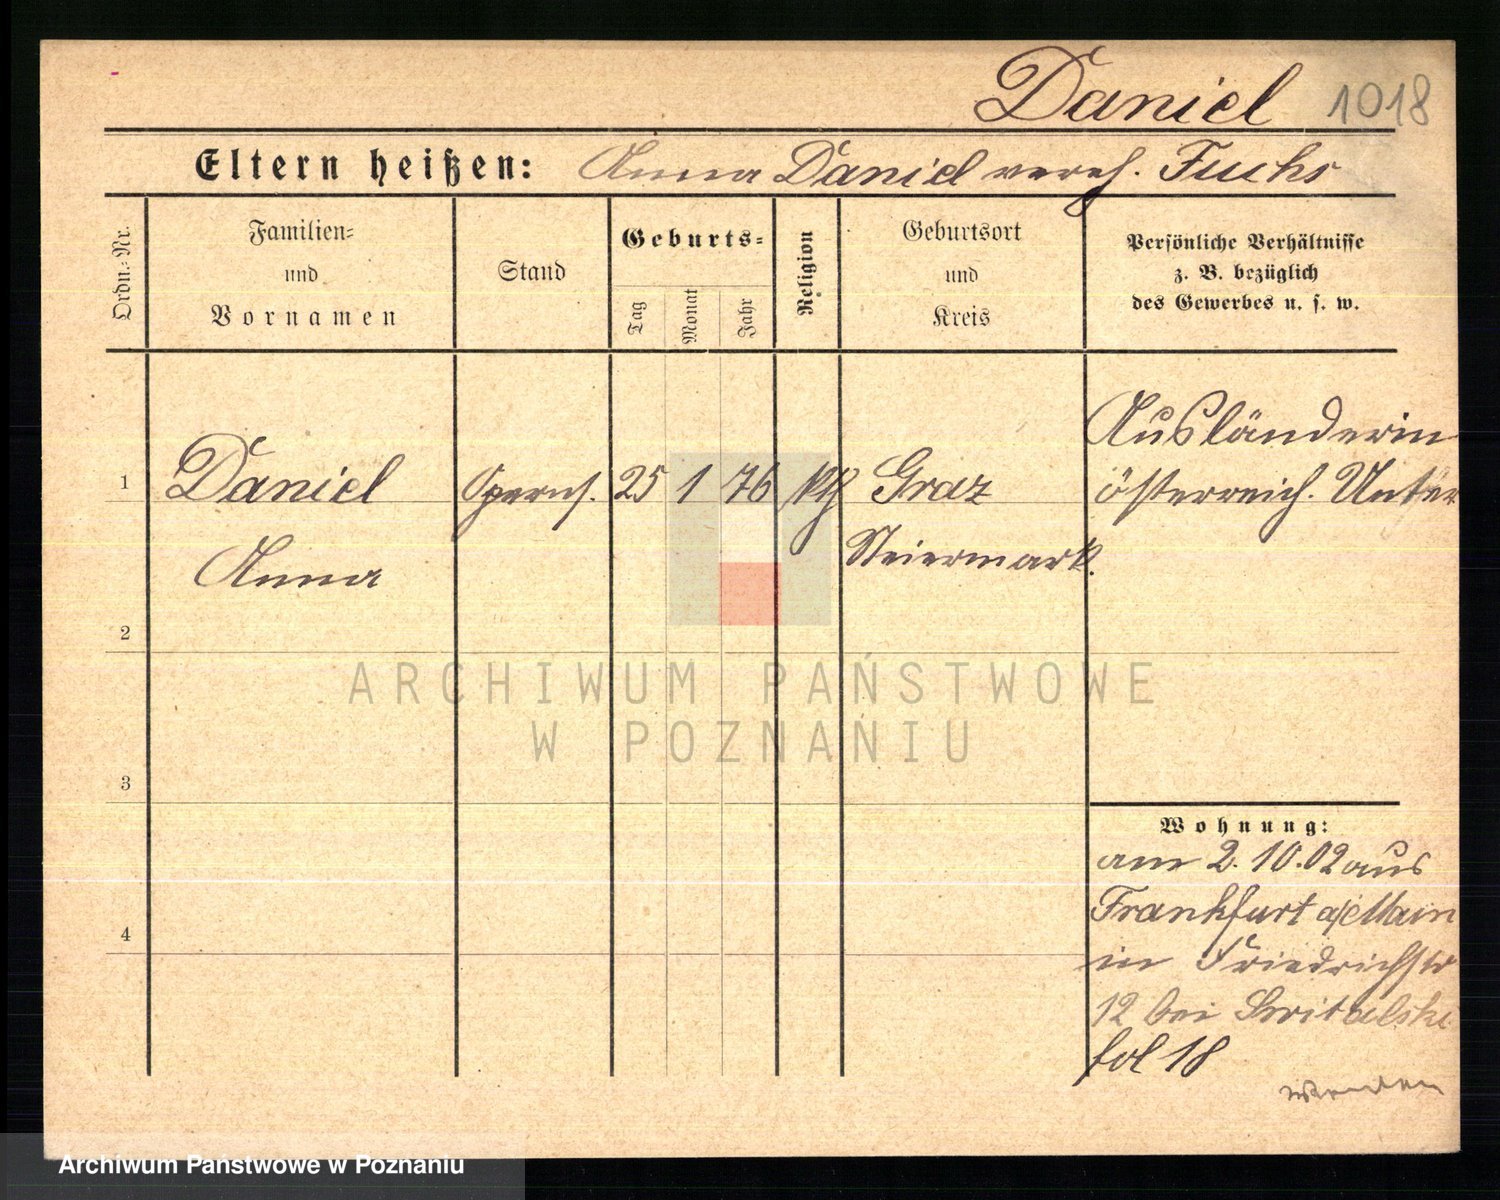 Daniel 1018
Eltern heißen: Anna Daniel vereh. Fuchs
Ordn.-Nr.
Familien-
und
Vornamen
Stand
Geburts-
Tag
Monat
Jahr
Religion
Geburtsort
und
Kreis
Persönliche Verhältnisse
z. B. bezüglich
des Gewerbes u. s. w.
Ausländerin
1 Daniel Operns. 25 1 76 kth Graz österreich. Unter
Anna Steiermark.
2
ARCHIWUM PAŃSTWOWE
W POZNANIU
3
Wohnung:
am 2.10.02 aus
Frankfurt a/Main
4
in Friedrichstr
12 bei Switalski
fol 18
wenden
Archiwum Państwowe w Poznaniu